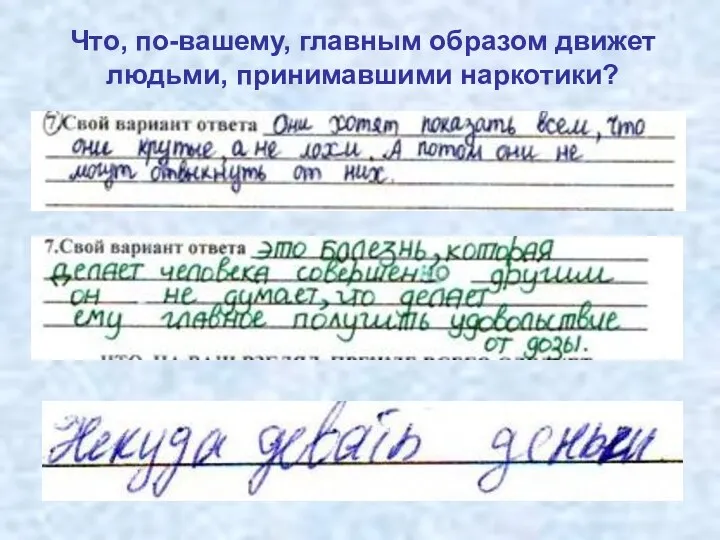 Что, по-вашему, главным образом движет
людьми, принимавшими наркотики?
7. Свой вариант ответа Они хотят показать всем, что
они крутые, а не лохи. А потом они не
могут отвыкнуть от них.
7.Свой вариант ответа это болезнь, которая
делает человека совершенно другим
он не думает, что делает
ему главное получить удовольствие
от дозы.
Некуда девать деньги